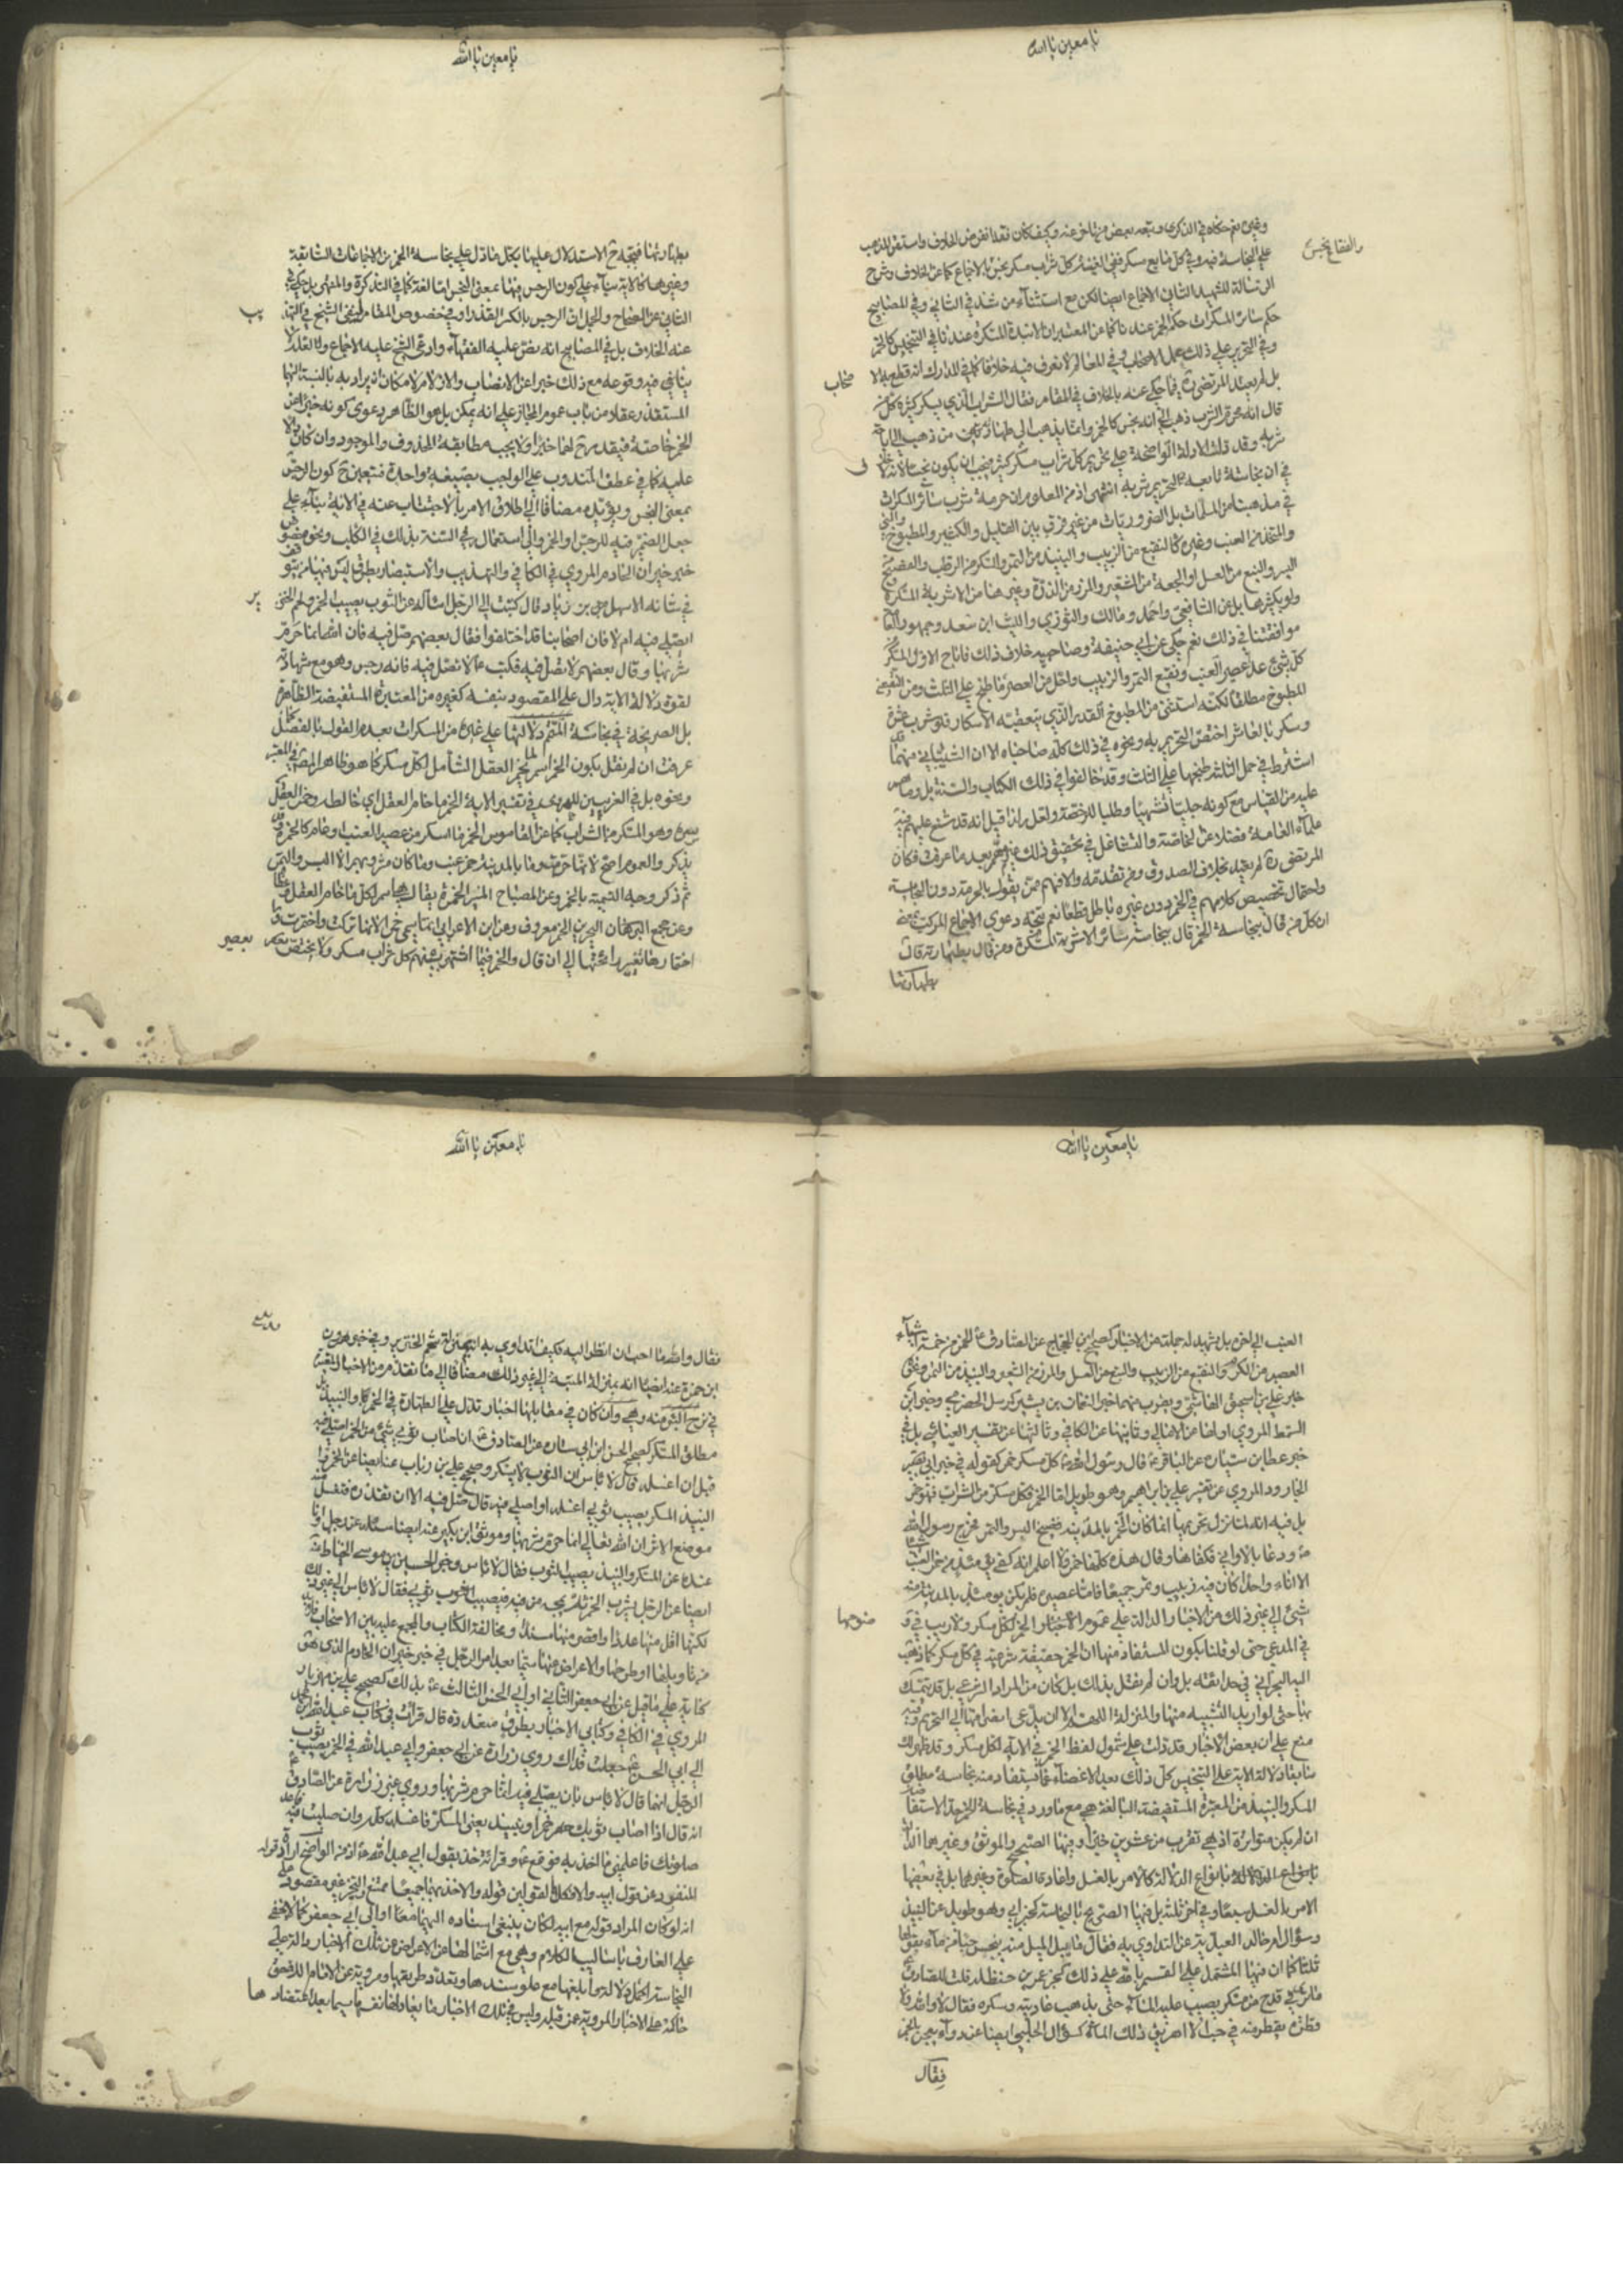 يا معين يا الله
وغيره نعم حكاه في الذكرى وتبعه بعض من تاخر عنه وكيف كان فقد انقرض الخلاف واستقر المذهب
والفقاع نجس
على النجاسة فيه وفي كل مايع مسكر ففي الغنية كل شراب مسكر نجس بالاجماع كما عن الخلاف وشرح
الرسالة للشهيد الثاني الاجماع ايضا لكن مع استثناء من شذ في الثاني وفي المصابيح
حكم سائر المسكرات حكم الخمر عندنا كما عن المعتبر ان الانبذة المسكرة عندنا في التنجيس كالخمر
وفي التحرير على ذلك عمل الاصحاب وفي المعالم لا نعرف فيه خلافا كما في المدارك انه قطع به الا
صحاب
بل لم يعتد المرتضى ره فيما حكي عنه بالخلاف في المقام فقال الشراب الذي يسكر كثيره كل من
قال انه محرم الشرب ذهب الى انه نجس كالخمر وانما يذهب الى طهارته من ذهب الى اباحة
شربه وقد دلت الادلة الواضحة على تحريم كل شراب مسكر كثيره فيجب ان يكون نجسا لانه لا خلاف
في ان نجاسته تابعة لتحريم شربه انتهى اذ من المعلوم ان حرمة شرب سائر المسكرات
في مذهبنا من المسلمات بل الضروريات من غير فرق بين القليل والكثير والمطبوخ والنى
والمتخذ من العنب وغيره كالنقيع من الزبيب والنبيذ من التمر والسكر من الرطب والفضيخ
البسر والبتع من العسل او الجعة من الشعير والمزر من الذرة وغيرها من الاشربة المسكرة
ولو بكثيرها بل عن الشافعي واحمد ومالك والثوري والليث ابن سعد وجمهور العامة
موافقتنا في ذلك نعم حكي عن ابي حنيفة وصاحبيه خلاف ذلك فاباح الاول المسكر
كل شئ عدا عصير العنب ونقيع التمر والزبيب واحل من العصير ما طبخ على الثلث ومن النقيع
المطبوخ مطلقا لكنه استثنى من المطبوخ القدر الذي يتعقبه الاسكار فلو شرب عشرة
وسكر بالعاشر اختص التحريم به ونحوه في ذلك كله صاحباه الا ان الشيباني منهما
اشترط في حل الثلثه طبخها على الثلث وقد خالفوا في ذلك الكتاب والسنة بل وما
عليه من القياس مع كونه جليا تشهيا وطلبا للرخصة ولعل لذا قيل انه قد شنع عليهم فيه
علماء العامة فضلا عن الخاصة والتشاغل في تحقيق ذلك غير مهم بعد ما عرفت فكان
المرتضى ره لم يعتد بخلاف الصدوق ومن تقدمه والا فهم ممن يقول بالحرمة دون النجاسة
واحتمال تخصيص كلامهم في الخمر دون غيره باطل قطعا نعم يتجه دعوى الاجماع المركب
ان كل من قال بنجاسة الخمر قال بنجاسة سائر الاشربة المسكرة ومن قال بطهارته قال
بطهارتها
يا معين يا الله
بطهارتها فيتجه ح الاستدلال عليها بكل ما دل على نجاسة الخمر من الاجماعات السابقة
وغيرها كالاية بناء على كون الرجس فيها بمعنى النجس اما لغة كما في التذكرة والمنتهى بل حكي في
الثاني عن الصحاح والمجمل ان الرجس بالكسر القذر او في خصوص المقام لنفي الشيخ في التهذيب
عنه الخلاف بل في المصابيح انه نص عليه الفقهاء وادعى الشيخ عليه الاجماع ولا
ينافي فيه وقوعه مع ذلك خبرا عن الانصاب والازلام لامكان ان يراد به بالنسبة اليها
المستقذر عقلا من باب عموم المجاز على انه يمكن بل هو الظاهر دعوى كونه خبرا عن
الخمر خاصة فيقدر ح لها خبر ولا يجب مطابقة المحذوف والموجود وان كان دالا
عليه كما في عطف المندوب على الواجب بصيغة واحدة فيتعين ح كون الرجس
بمعنى النجس ويؤيده مضافا الى اطلاق الامر بالاجتناب عنه في الاية بناء على
جعل الضمير فيه للرجس او الخمر والى استعمال السنة بذلك في الكلب ونحوه
خبر خيران الخادم المروي في الكافي والتهذيب والاستبصار بطرق ليس فيها من يتوقف
في شانه الا سهل بن زياد قال كتبت الى الرجل اساله عن الثوب يصيبه الخمر ولحم الخنزير
ايصلى فيه ام لا فان اصحابنا قد اختلفوا فقال بعضهم صل فيه فان الله انما حرم
شربها وقال بعضهم لا تصل فيه فكتب ع لا تصل فيه فانه رجس وهو مع شهادته
لقوة دلالة الاية دال على المقصود بنفسه كغيره من المعتبرة المستفيضة الظاهرة
بل الصريحة في نجاسة المتقدم دلالتها على غيره من المسكرات بعدم القول بالفصل كما
عرفت ان لم نقل بكون الخمر اسم لمخمر العقل الشامل لكل مسكر كما هو ظاهر المص في المعتبر
ونحوه بل في الغريبين للهروي في تفسير الاية الخمر ما خامر العقل اي خالطه وخمر العقل
ستره وهو المسكر من الشراب كما عن القاموس الخمر ما اسكر من عصير العنب او عام كالخمرة وقد
يذكر والعموم اصح لانها حرمت وما بالمدينة خمر عنب وما كان مشروبهم الا البسر والتمر
ثم ذكر وجه التسمية بالخمر وعن المصباح المنير الخمرة يقال هي اسم لكل مسكر خامر العقل غطاه
وعن مجمع البحرين الخمر معروف وعن ابن الاعرابي انما سمي خمرا لانها تركت واختمرت و
اختمارها تغير رائحتها الى ان قال والخمر فيما اشتهر بينهم كل شراب مسكر ولا يختص بعصير
يا معين يا الله
العنب الى اخره بل يشهد له جملة من الاخبار كصحيح ابن الحجاج عن الصادق ع الخمر من خمسة اشياء
العصير من الكرم والنقيع من الزبيب والبتع من العسل والمزر من الشعير والنبيذ من التمر ونحوه
خبر علي بن اسحق الهاشمي ويقرب منهما خبر النعمان بن بشير كمرسل الحضرمي وخبر ابن
السمط المروي اولها عن الامالي وثانيها عن الكافي وثالثها عن تفسير العياشي بل في
خبر عطا بن سيار عن الباقر ع قال رسول الله ص كل مسكر خمر كقوله في خبر ابي
الجارود المروي عن تفسير علي بن ابراهيم وهو طويل اما الخمر فكل مسكر من الشراب فهو خمر
بل فيه انه لما نزل تحريمها انما كان الخمر بالمدينة فضيخ البسر والتمر فخرج رسول الله
ص ودعا بالاواني فكفاها وقال هذه كلها خمر ولا اعلم انه كفئ يومئذ من خمر العنب
الا اناء واحدا كان فيه زبيب وتمر جميعا فاما عصير فلم يكن يومئذ بالمدينة منه
شئ الى غير ذلك من الاخبار الدالة على عموم الاخبار والخمر لكل مسكر ولا ريب في
في المدعى حتى لو قلنا بكون المستفاد منها ان الخمر حقيقة شرعية في كل مسكر كما ذهب
اليه البحراني في حدائقه بل وان لم نقل بذلك بل كان من المراد الشرعي بل قد يتمسك
بها حتى لو اريد التشبيه منها والمنزلة اللهم الا ان يدعى انصرافها الى التحريم وفيه
منع على ان بعض الاخبار قد دلت على شمول لفظ الخمر في الاية لكل مسكر وقد ظهر لك
سابقا دلالة الاية على التنجيس كل ذلك بعد الاغضاء عما يستفاد منه نجاسة مطلق
المسكر والنبيذ من المعتبرة المستفيضة البالغة هي مع ما ورد في نجاسة الخمر حد الاستفاضة
ان لم يكن متواترة اذ هي تقرب من عشرين خبرا وفيها الصحيح والموثق وغيرهما الدالة
بانواع الدلالة كالامر بالغسل واعادة الصلوة وغيرهما بل في بعضها
الامر بالغسل سبعا وفي اخر ثلثة بل فيها الصريح بالنجاسة كخبر ابي وهو طويل عن النبيذ
وسؤال ام خالد العبدية عن التداوي به فقال ما يبل الميل منه ينجس حبا من ماء يقولها
ثلثا كما ان فيها المشتمل على القسم بالله على ذلك كخبر عمر بن حنظلة قلت للصادق ع
ما ترى في قدح من مسكر يصب عليه الماء حتى يذهب عاديته وسكره فقال لا والله ولا
قطرة يقطر منه في حب الا اهريق ذلك الماء كسؤال الحلبي ايضا عن دواء يعجن بالخمر
فقال
يا معين يا الله
فقال والله ما احب ان انظر اليه فكيف اتداوى به انه بمنزلة شحم الخنزير وفي خبر هرون
ابن حمزة عنه ايضا انه بمنزلة الميتة الى غير ذلك مضافا الى ما تقدم من الاخبار المعتبرة
في نزح البئر منه وهي وان كان في مقابلها اخبار تدل على الطهارة في الخمر والنبيذ بل
مطلق المسكر كصحيح الحسن ابن ابي سارة عن الصادق ع ان اصاب ثوبي شئ من الخمر اصلي فيه
قبل ان اغسله قال لا باس ان الثوب لا يسكر وصحيح علي بن رئاب عنه ايضا عن الخمر و
النبيذ المسكر يصيب ثوبي اغسله او اصلي فيه قال صل فيه الا ان تقذره فتغسل منه
موضع الاثر ان الله تعالى انما حرم شربها وموثق ابن بكير عنه ايضا سئله رجل وانا
عنده عن المسكر والنبيذ يصيب الثوب فقال لا باس وخبر الحسين بن موسى الحناط
ايضا عن الرجل يشرب الخمر ثم يمجه من فيه فيصيب ثوبي فقال لا باس الى غير ذلك
لكنها اقل منها عددا واقصر منها سندا ومخالفة الكتاب والمجمع عليه بين الاصحاب فلا بد
من تاويلها او طرحها والاعراض عنها سيما بعد امر الرجل في خبر خيران الخادم الذي هو
كناية على ما قيل عن ابي جعفر الثاني او ابي الحسن الثالث ع بذلك كصحيح علي بن مهزيار
المروي في الكافي وكتابي الاخبار بطرق متعددة قال قرات في كتاب عبد الله بن محمد
الى ابي الحسن ع جعلت فداك روى زرارة عن ابي جعفر وابي عبد الله في الخمر يصيب ثوب
الرجل انهما قال لا باس بان يصلى فيه انما حرم شربها وروي غير زرارة عن الصادق ع
انه قال اذا اصاب ثوبك خمر او نبيذ يعني المسكر فاغسله كله وان صليت فيه فاعد
صلوتك فاعلمني ما اخذ به فوقع ع وقرائته خذ بقول ابي عبد الله ع اذ من الواضح ارادة قوله
المنفرد عن قول ابيه والا فكلا القولين قوله والاخذ بهما جميعا ممتنع والتخيير غير مقصود
انه لو كان المراد قوله مع ابيه لكان ينبغي اسناده اليهما معا او الى ابي جعفر كما لا يخفى
على العارف باساليب الكلام وهي مع اشتمالها عن الاعراض عن تلك الاخبار والة على
النجاسة اكمل دلالة وابلغها مع علو سندها وتعدد طريقها ومروية عن الامام اللاحق
حاكمة على الاخبار المروية عمن قبله وليس في تلك الاخبار ما يعادلها نفسها سيما بعد اعتضادها